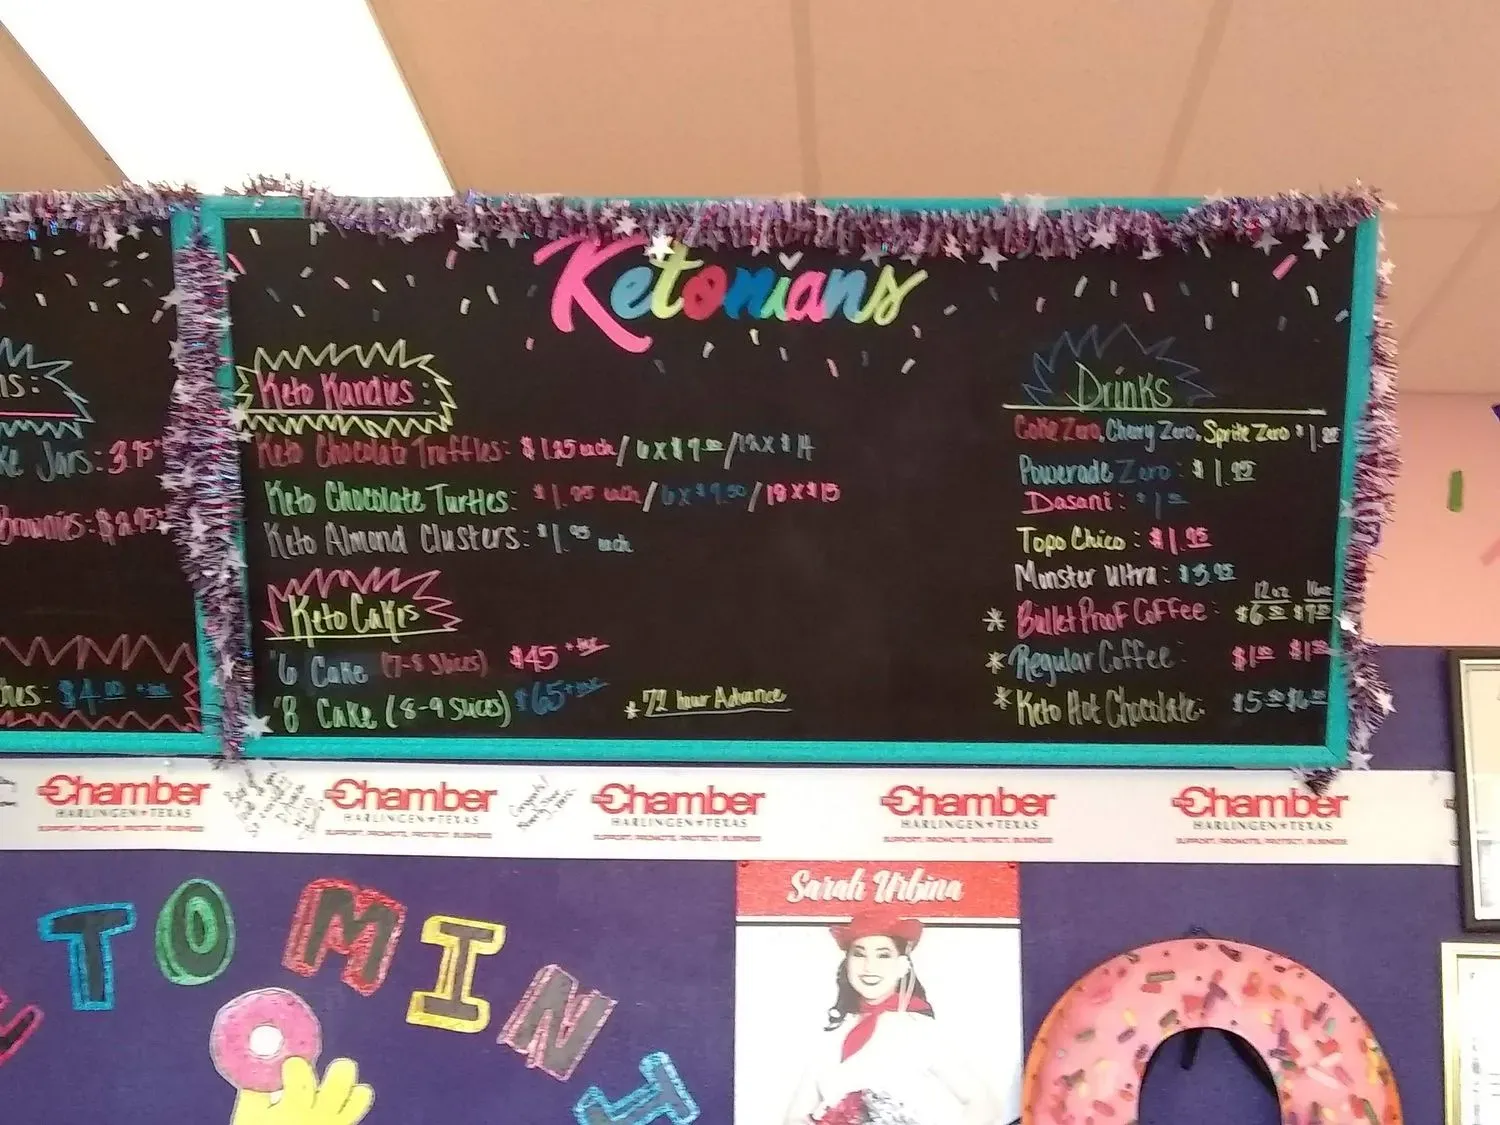 Ketonians
ke Jars: 3.75
Brownies: $2.95
hes: $4.00 + tax
Keto Kandies:
Keto Chocolate Truffles: $1.25 each / 6 x $7.00 / 12 x $14
Keto Chocolate Turtles: $1.95 each / 6 x $9.50 /
Keto Almond Clusters: $1.95 each
Keto Cakes
"6 Cake (7-8 Slices) $45 + tax
"8 Cake (8-9 Slices) $65 + tax
* 72 hour Advance
Drinks
Coke Zero, Cherry Zero, Sprite Zero
Powerade Zero: $1.95
Dasani:
Topo Chico: $1.95
Monster Ultra: $3.95
12oz 16oz
* Bullet Proof Coffee: $6.50 $7.50
* Regular Coffee:
* Keto Hot Chocolate:
Chamber Chamber Chamber Chamber Chamber
HARLINGEN TEXAS HARLINGEN TEXAS HARLINGEN TEXAS HARLINGEN TEXAS HARLINGEN TEXAS
SUPPORT, PROMOTE, PROTECT, BUSINESS SUPPORT, PROMOTE, PROTECT, BUSINESS SUPPORT, PROMOTE, PROTECT, BUSINESS SUPPORT, PROMOTE, PROTECT, BUSINESS SUPPORT, PROMOTE, PROTECT, BUSINESS
Sarah Urbina
TO MIN